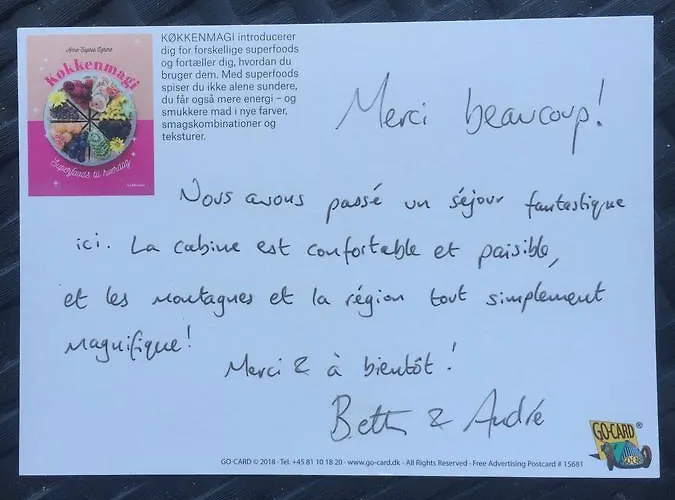 Anne-Sophie Espino
Køkkenmagi
Superfoods til hverdag
KØKKENMAGI introducerer
dig for forskellige superfoods
og fortæller dig, hvordan du
bruger dem. Med superfoods
spiser du ikke alene sundere,
du får også mere energi – og
smukkere mad i nye farver,
smagskombinationer og
teksturer.
Merci beaucoup!
Nous avons passé un séjour fantastique
ici. La cabine est confortable et paisible,
et les montagnes et la région tout simplement
magnifique!
Merci & à bientôt!
Beth & André
GO-CARD ®
GO-CARD © 2018 · Tel. +45 81 10 18 20 · www.go-card.dk - All Rights Reserved - Free Advertising Postcard # 15681